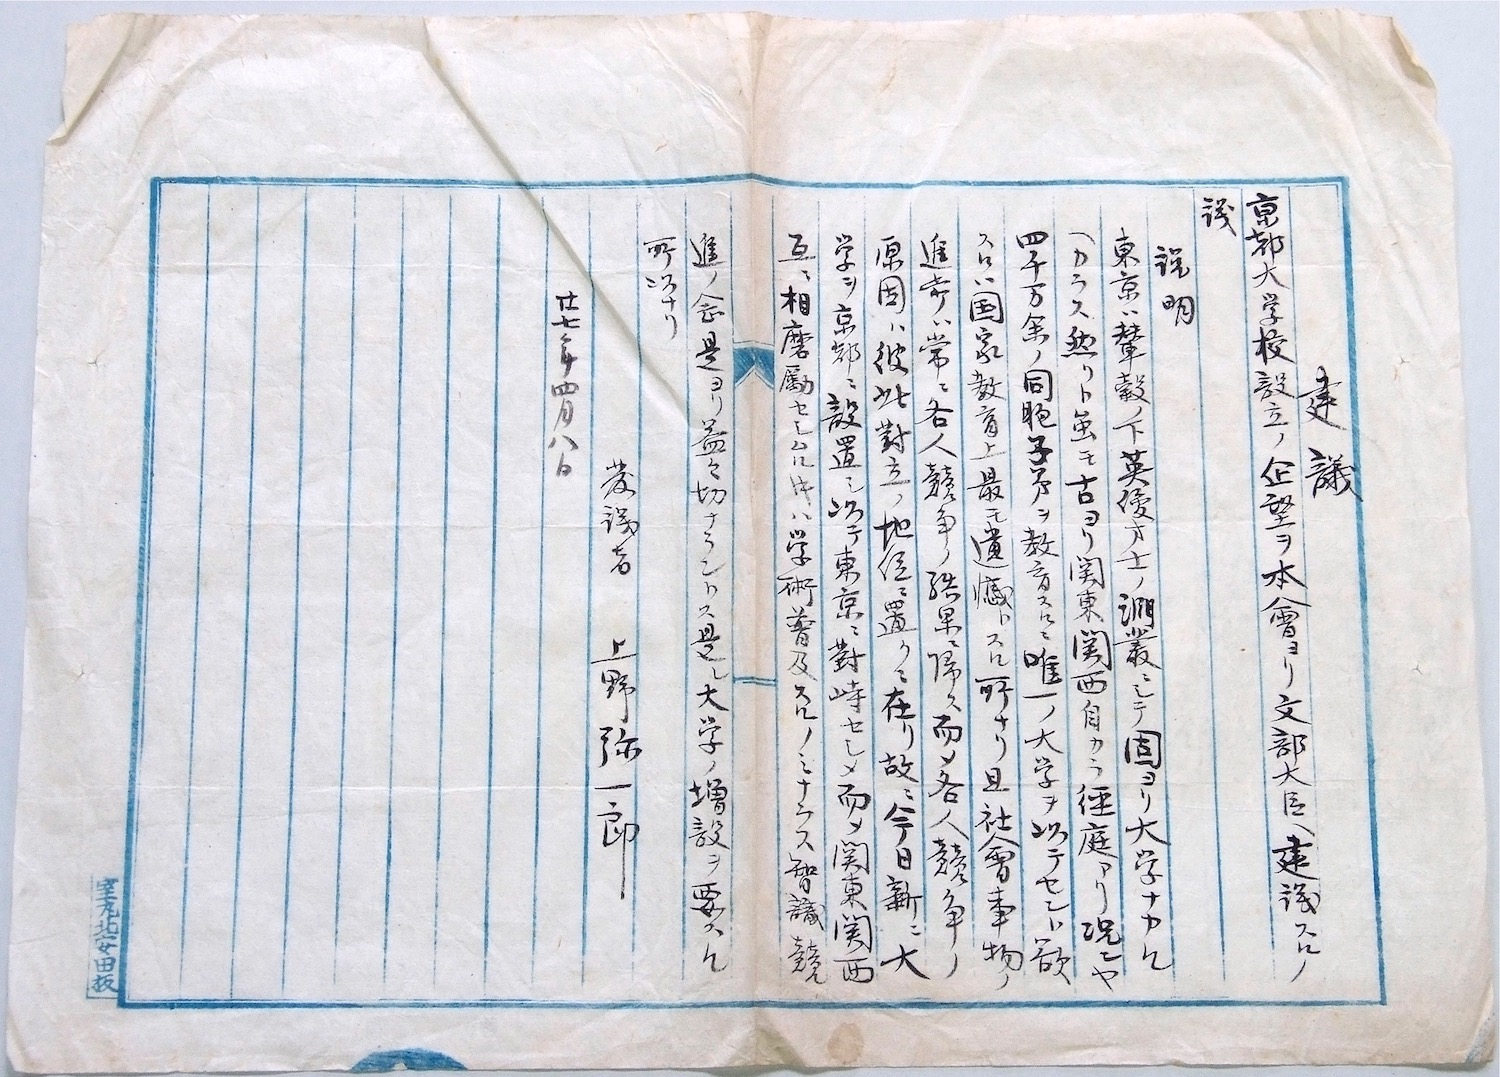 建議
京都大学校設立ノ企望ヲ本會ヨリ文部大臣ヘ建議スルノ
議
説明
東京ハ輦轂ノ下英俊才士ノ淵叢ニシテ固ヨリ大学ナカル
ヘカラス然リト虽モ古ヨリ関東関西自カラ徑庭アリ况ンヤ
四千万余ノ同胞子弟ヲ教育スルニ唯一ノ大学ヲ以テセント欲
スルハ国家教育上最モ遺憾トスル所ナリ且社會事物ノ
進歩ハ常ニ各人競争ノ結果ニ帰ス而〆各人競争ノ
原因ハ彼此對立ノ地位ニ置クニ在リ故ニ今日新ニ大
学ヲ京都ニ設置シ以テ東京ニ對峙セシメ而〆関東関西
互ニ相磨励セシムル片ハ学術普及スルノミナラス智識競
進ノ念是ヨリ益々切ナラントス是レ大学ノ増設ヲ要スル
所以ナリ
発議者 上野弥一郎
廿七年四月八日
安田板